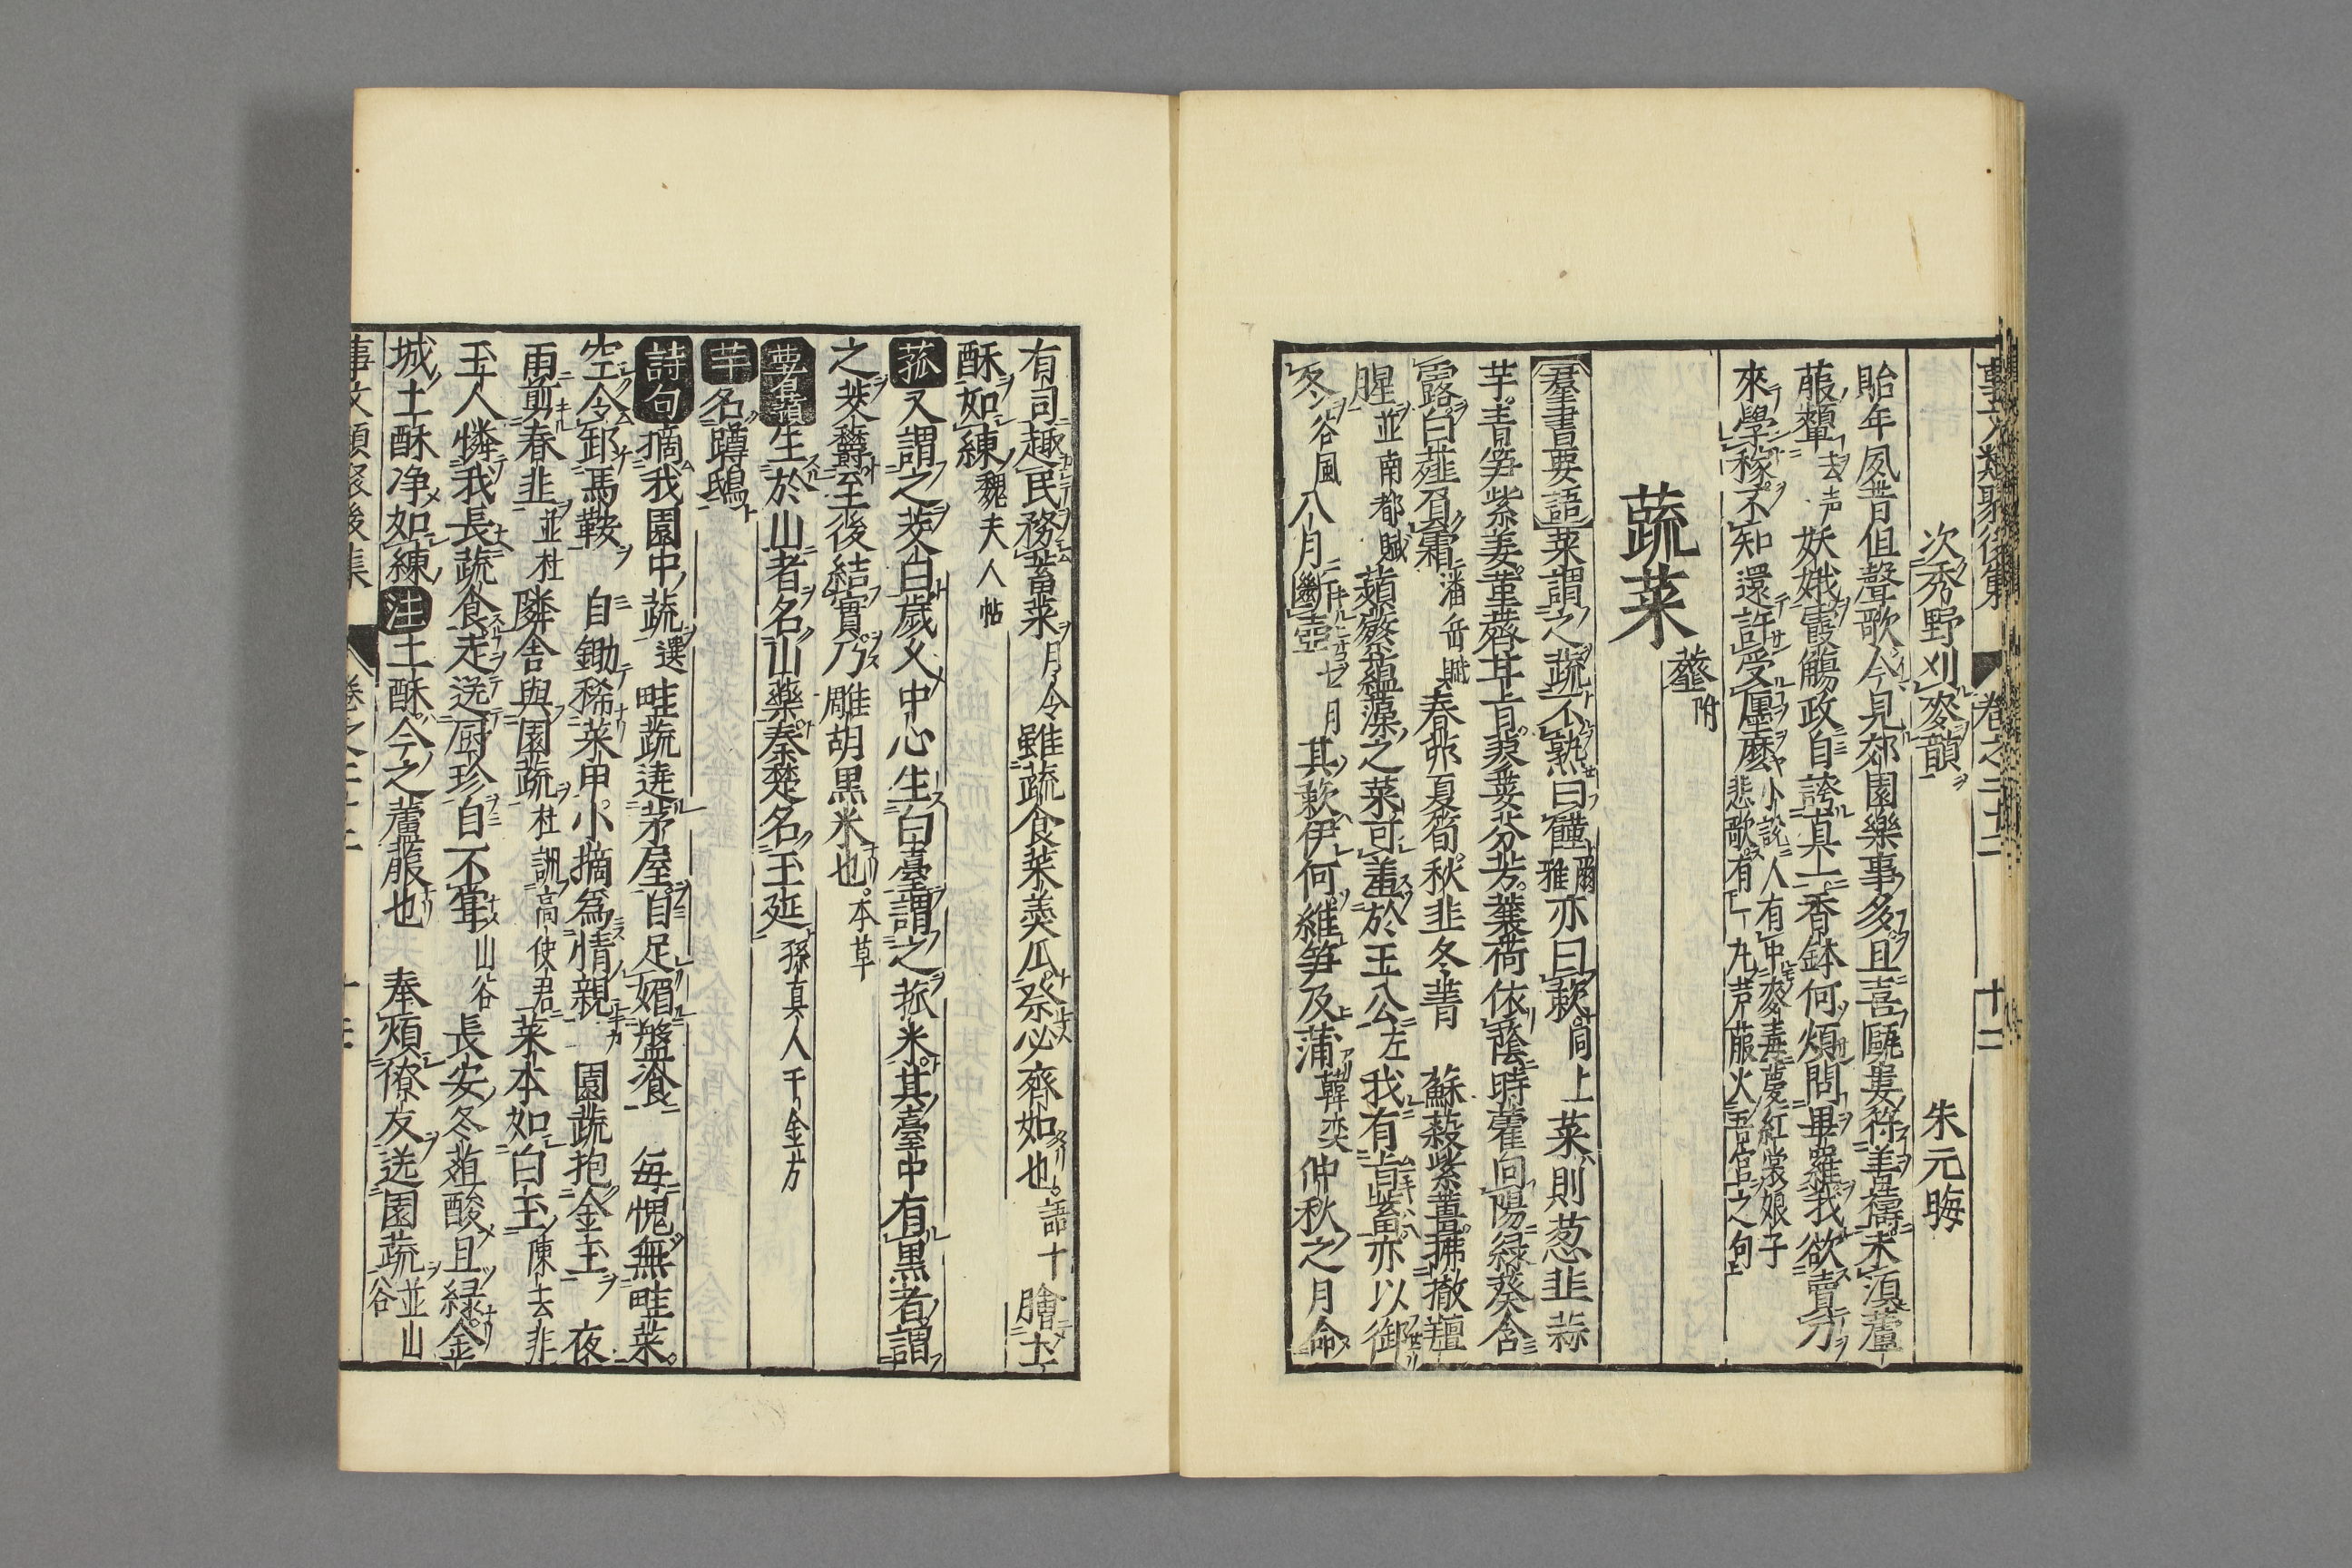 事文類聚後集 卷之二十二 十三
次秀野刈麥韻 朱元晦
貽年夙昔但聲歌今見郊園樂事多且喜甌婁符善禱未須蘆
菔顰去声妖娥霞觴政自誇真一香鉢何煩問畢羅我欲賣刀
來學稼不知還許受廛麽小說人有中麥毒夢紅裳娘子
悲歌有一丸蘆菔火吾宮之句
蔬菜
虀附
羣書要語菜謂之蔬不熟曰饉爾雅亦曰蔌同上菜則葱韭蒜
芋青笋紫姜堇薺甘旨蓼荽芬芳蘘荷依蔭時藿向陽緑葵含
露白薤負霜潘岳賦春夘夏筍秋韭冬菁蘇蔱紫薑拂撤羶
腥並南都賦蘋蘩薀藻之菜可羞於王公左我有旨蓄亦以御
冬谷風八月斷壺七月其蔌伊何維笋及蒲韓奕仲秋之月命
有司趣民務蓄菜月令雖蔬食菜羹瓜祭必齊如也語十膾土
酥如練魏夫人帖
菰又謂之茭白歲久中心生白臺謂之菰米其臺中有黒者謂
之茭欝至後結實乃雕胡黒米也本草
薯蕷生於山者名山藥秦楚名玉延孫真人千金方
芋名蹲鴟
詩句摘我園中蔬選畦蔬遶茅屋自足媚盤飡 每愧無畦菜
空令卸馬鞍 自鋤稀菜甲小摘為情親 園蔬抱金玉 夜
雨剪春韭並杜隣舍與園蔬杜詶高使君菜本如白玉陳去非
玉人憐我長蔬食走送厨珍自不甞山谷長安冬葅酸且緑金
城土酥净如練注土酥今之蘆菔也 奉煩僚友送園蔬並山
谷
事文類聚後集 卷之二十二 十三